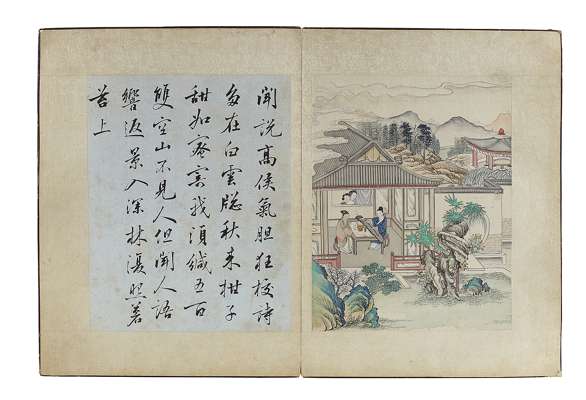 聞説高侯氣胆狂校詩
多在白雲牕秋来柑子
甜如蜜寄我須緘五百
雙空山不見人但聞人語
響返景入深林復照
苔上